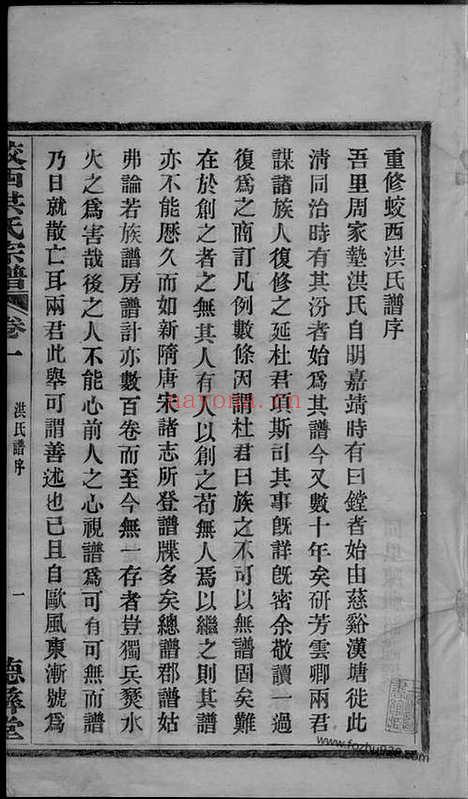 重修蛟西洪氏譜序
吾里周家墊洪氏自明嘉靖時有曰鏜者始由慈谿漢塘徙此
清同治時有其汾者始爲其譜今又數十年矣硏芳雲卿兩君
謀諸族人復修之延杜君頊斯司其事旣詳旣密余敬讀一過
復爲之商訂凡例數條因謂杜君曰族之不可以無譜固矣難
在於創之者之無其人有人以創之苟無人焉以繼之則其譜
亦不能歷久而如新隋唐宋諸志所登譜牒多矣總譜郡譜姑
弗論若族譜房譜計亦數百卷而至今無一存者豈獨兵燹水
火之爲害哉後之人不能心前人之心視譜爲可有可無而譜
乃日就散亡耳兩君此舉可謂善述也已且自歐風東漸號爲
蛟西洪氏宗譜 卷一 洪氏譜序 一 德彝堂
nayona.cn
www.fozhuhao.com